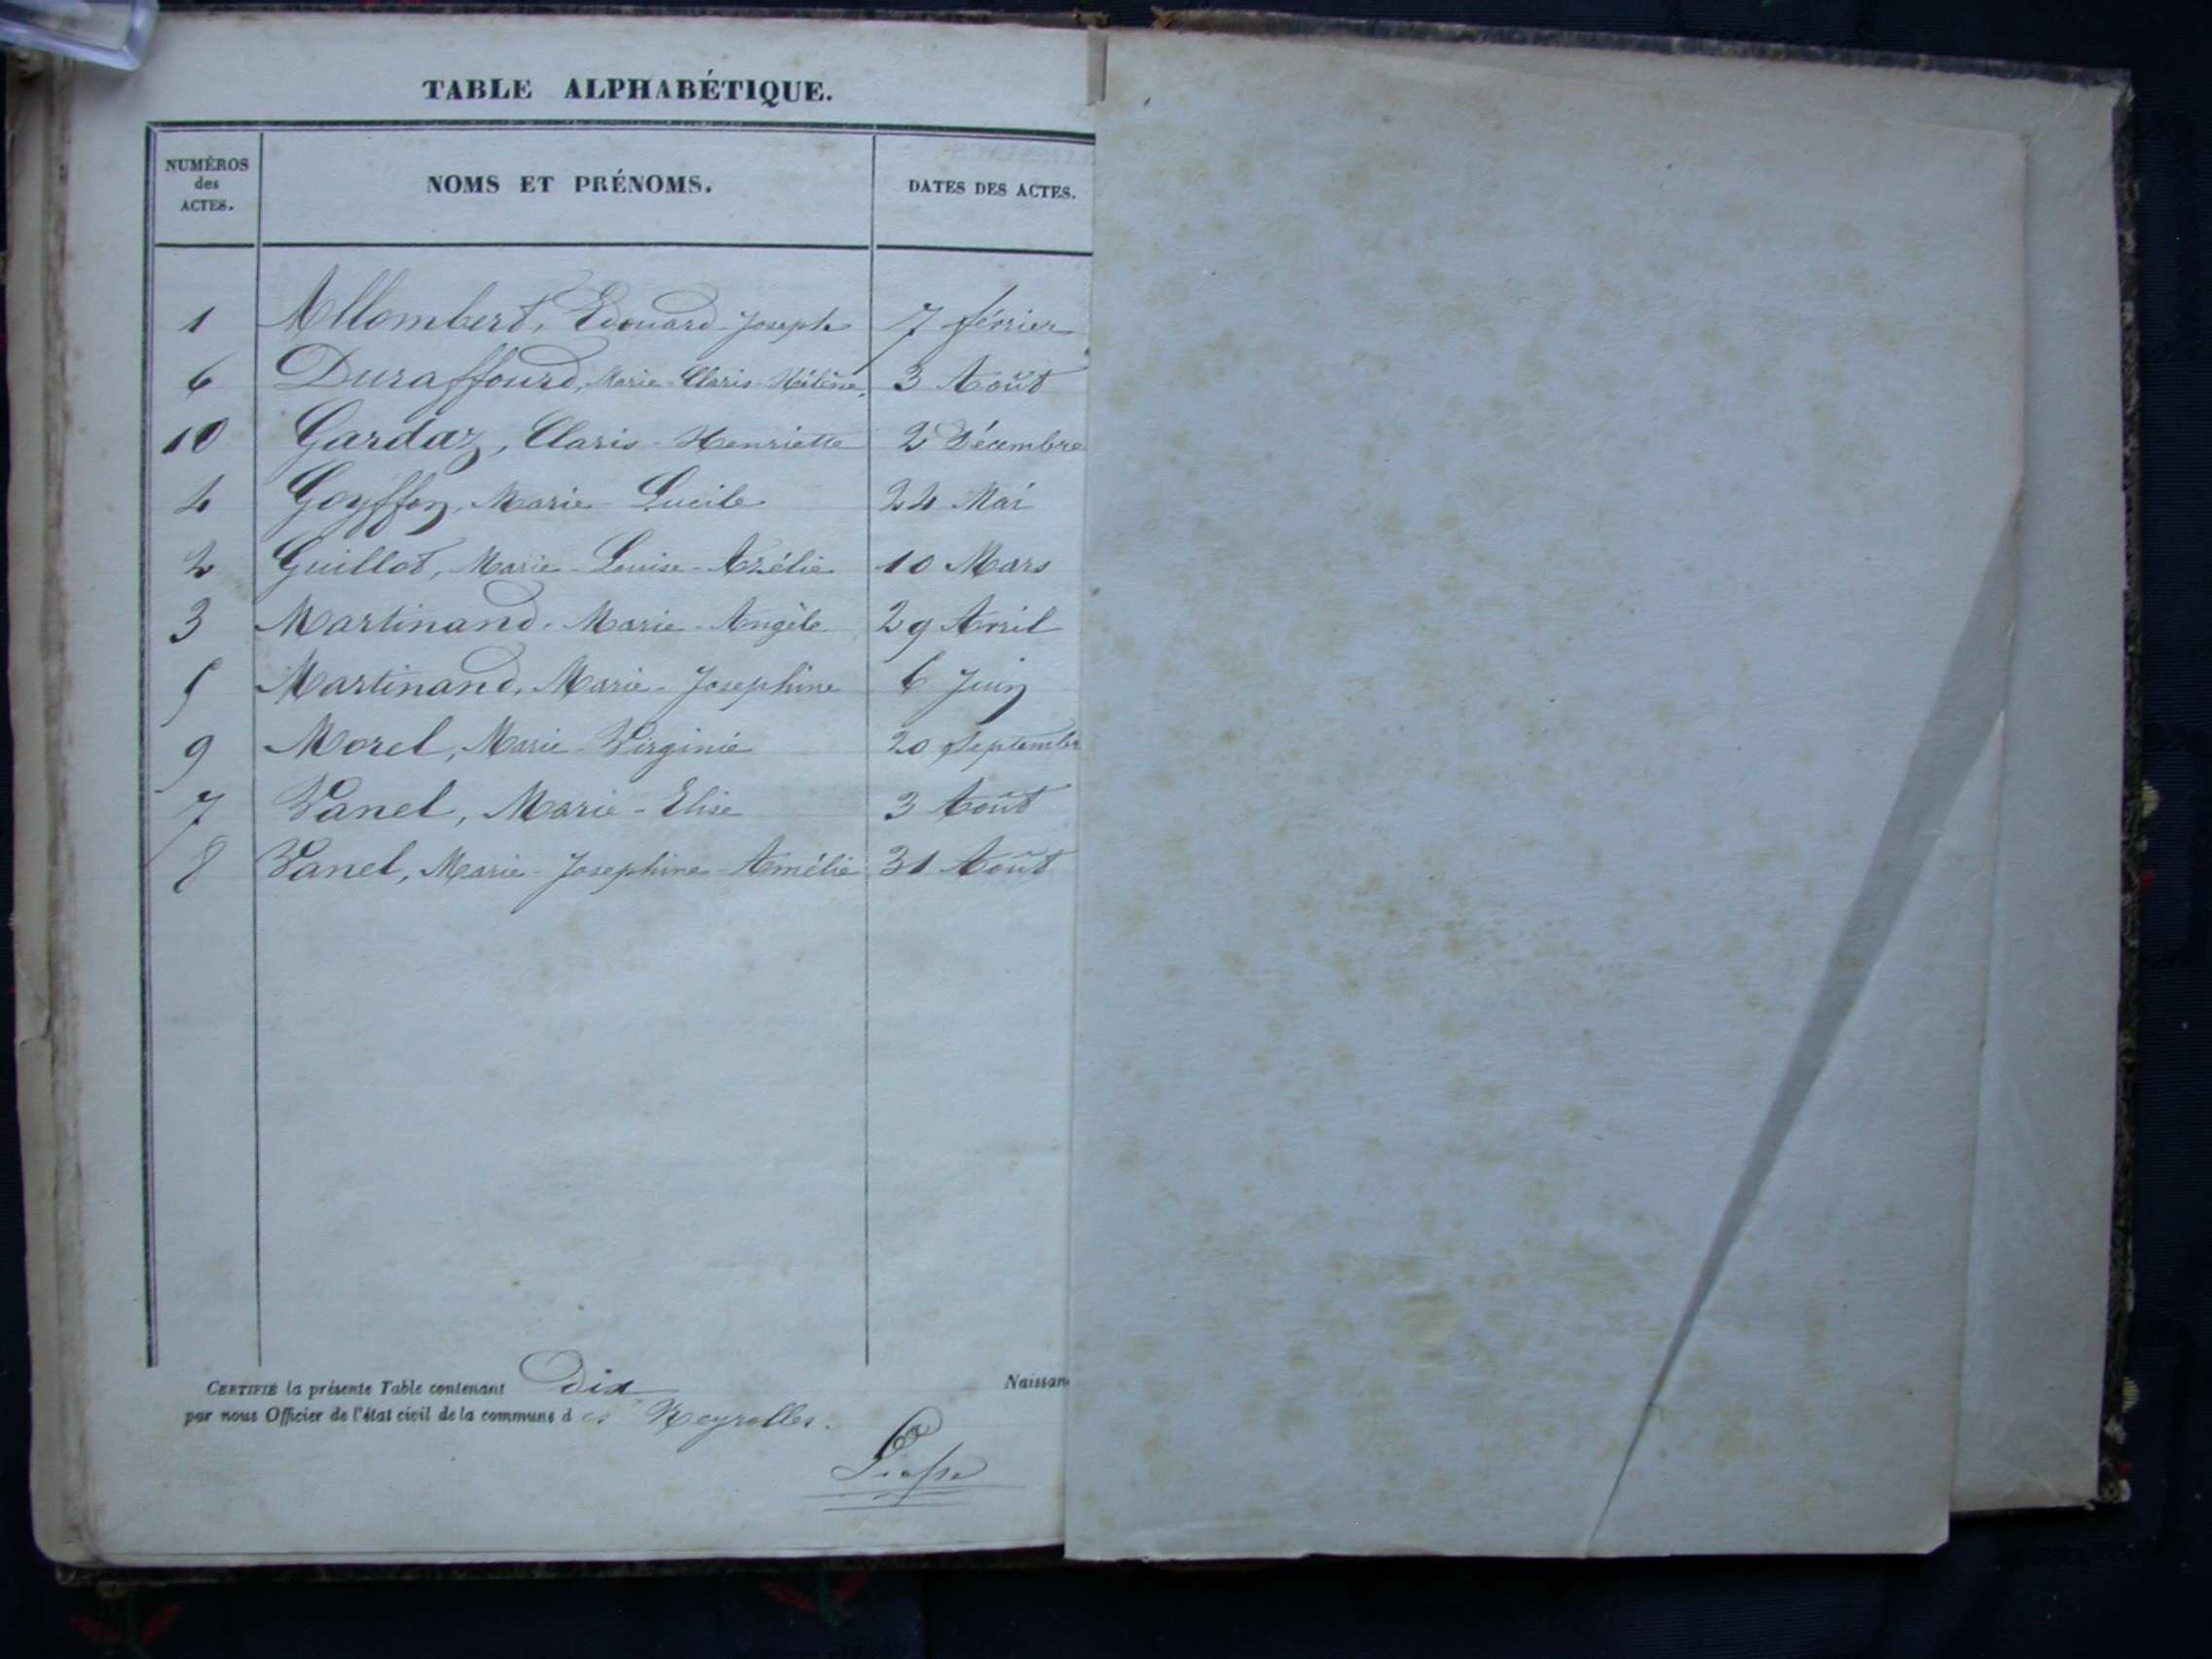 TABLE ALPHABÉTIQUE.
NUMÉROS des ACTES. NOMS ET PRÉNOMS. DATES DES ACTES.
1 Allombert, Edouard-Joseph 7 février
6 Duraffourd, Marie-Claris-Hélène, 3 Août
10 Gardaz, Claris-Henriette 2 Décembre
4 Goyffon, Marie-Lucile 24 Mai
2 Guillot, Marie-Louise-Azélie 10 Mars
3 Martinand, Marie-Angèle 29 Avril
5 Martinand, Marie-Josephine 6 Juin
9 Morel, Marie-Virginie 20 Septembre
7 Vanel, Marie-Elise 3 Août
8 Vanel, Marie-Josephine-Amélie 31 Août
CERTIFIÉ la présente Table contenant Dix Naissan
par nous Officier de l'état civil de la commune des Neyrolles.